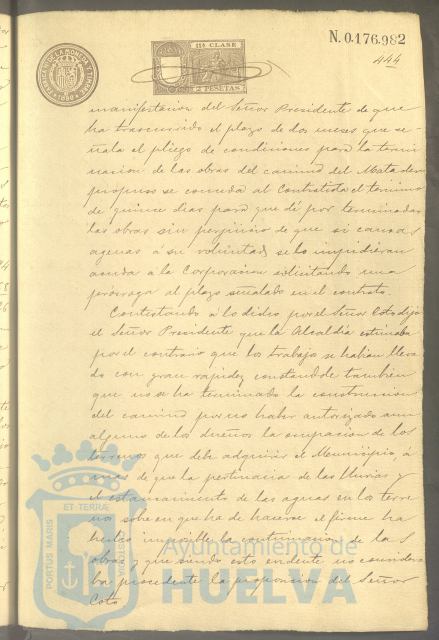 N. 0.176.982
444
FABRICA DE LA MONEDA Y TIMBRE
11ª CLASE
2 PESETAS
manifestacion del Señor Presidente de que
ha trascurrido el plazo de dos meses que se-
ñala el pliego de condiciones para la termi
nacion de las obras del camino del Matadero
propuso se conceda al Contratista el termino
de quince dias para que dé por terminadas
las obras sin perjuicio de que si causas
agenas á su voluntad se lo impidieran
acuda á la Corporacion solicitando una
prórroga al plazo señalado en el contrato.
Contestando á lo dicho por el Señor Coto dijo
el Señor Presidente que la Alcaldía estimaba
por el contrario que los trabajos se habian lleva
do con gran rapidez constandole tambien
que no se ha terminado la construccion
del camino por no haber autorizado aun
alguno de los dueños la ocupacion de los
terrenos que debe adquirir el Municipio, á
mas de que la pertinacia de las lluvias y
el estancamiento de las aguas en los terre
nos sobre en que ha de hacerse el firme ha
hecho imposible la continuacion de las
obras y que siendo esto evidente no considera
ba procedente la proposicion del Señor
Coto
PORTUS MARIS
ET TERRÆ
CUSTODIA
Ayuntamiento de
HUELVA